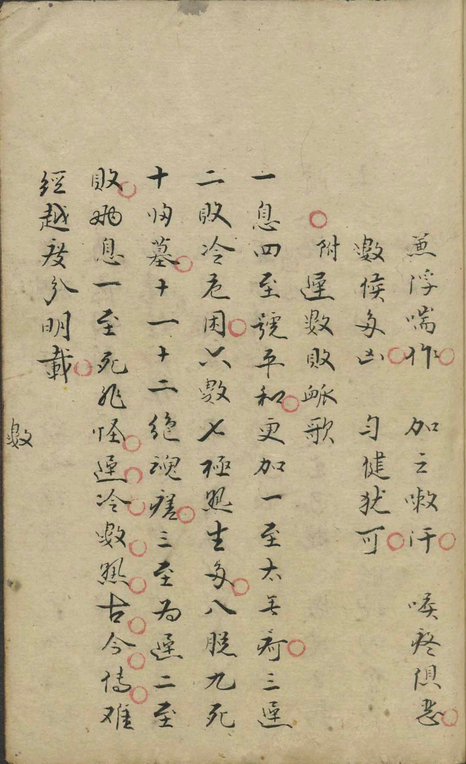 兼浮喘作 加之嗽汗 喉疼俱惡
數候多凶 勻健犹可
附遲數敗脈歌
一息四至號平和更加一至太無疴三遲
二敗冷危困六數七極熱生多八脫九死
十归墓十一十二絶魂瘥三至為遲二至
敗兩息一至死非怪遲冷數熱古今傳难
經越度分明載
數